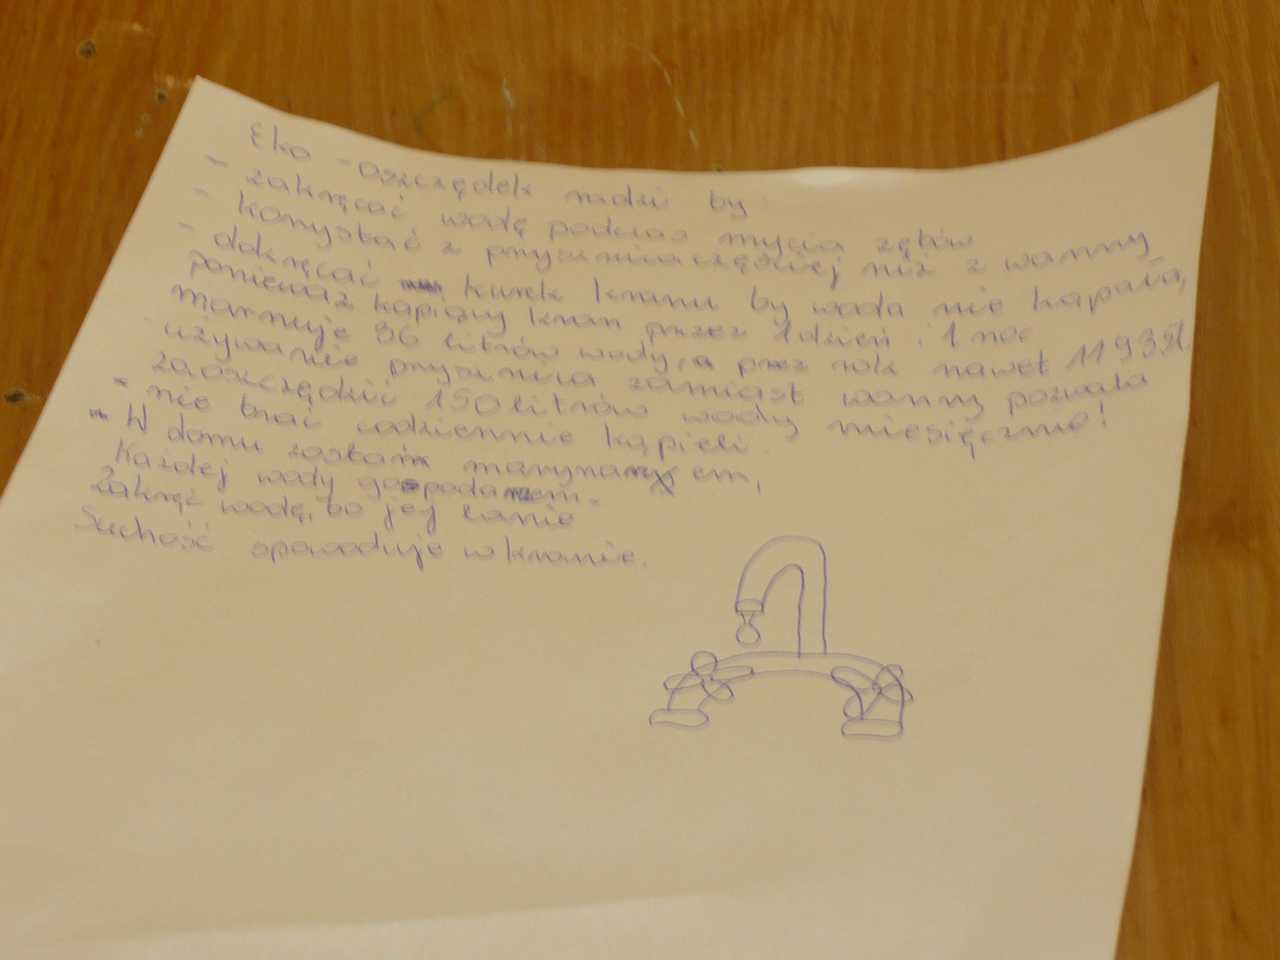 Eko - oszczędek radzi by
- zakręcać wodę podczas mycia zębów
- korzystać z prysznica częściej niż z wanny
- dokręcać kurek kranu by woda nie kapała,
ponieważ kapiący kran przez 1 dzień i 1 noc
marnuje 36 litrów wody, a przez rok nawet
używanie prysznica zamiast wanny pozwala
zaoszczędzić 150 litrów wody miesięcznie!
- nie brać codziennie kąpieli
- W domu zostań marynarzem,
Każdej wody gospodarzem.
Zakręć wodę, bo jej lanie
Suchość spowoduje w kranie.